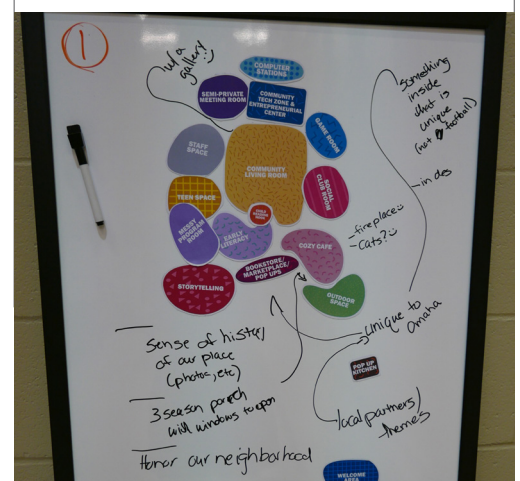 1
w/a
gallery!
COMPUTER
STATIONS
SEMI-PRIVATE
MEETING ROOM
COMMUNITY
TECH ZONE &
ENTREPRENEURIAL
CENTER
GAME ROOM
STAFF
SPACE
COMMUNITY
LIVING ROOM
SOCIAL
CLUB ROOM
TEEN SPACE
MESSY
PROGRAM
ROOM
EARLY
LITERACY
COZY CAFE
BOOKSTORE/
MARKETPLACE/
POP UPS
STORYTELLING
OUTDOOR
SPACE
something
inside
that is
unique
(not football)
-in des
-fireplace
-Cats?
unique to
Omaha
POP UP
KITCHEN
local partners/
themes
Sense of history
of our place
(photos, etc)
3 season porch
will windows to open
Honor our neighborhood
WELCOME
AREA